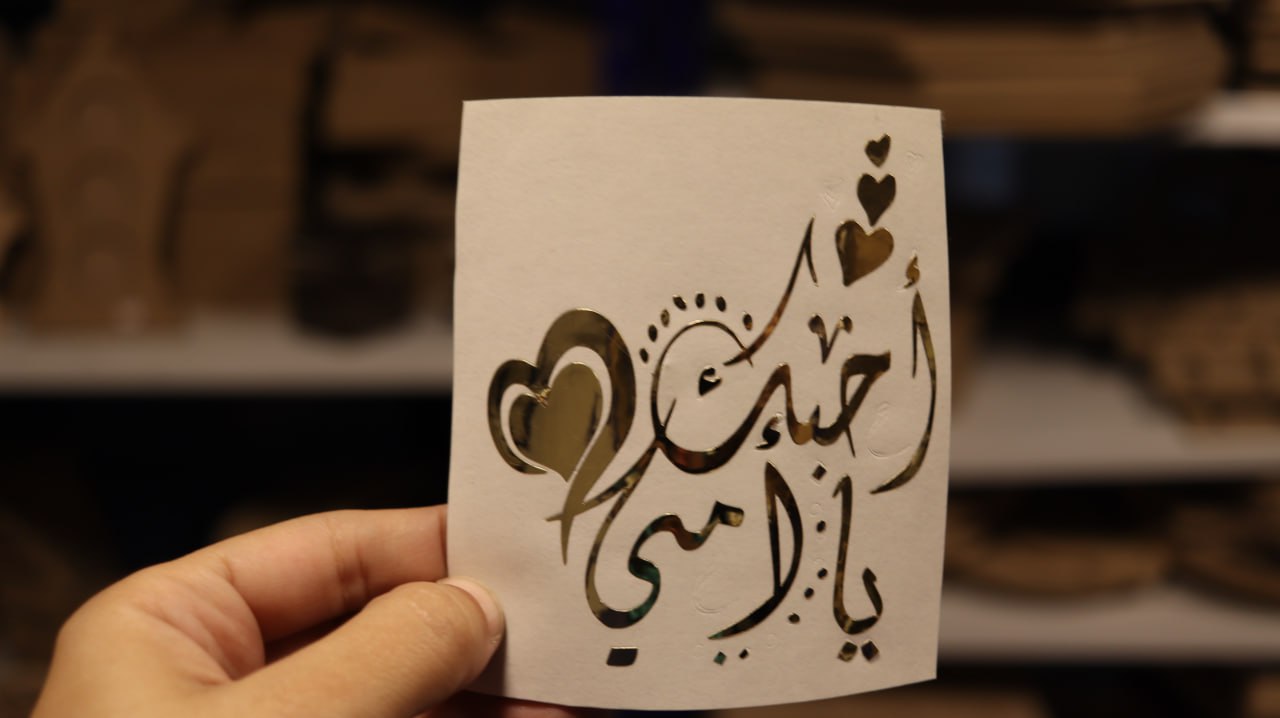 أحبك
يا امي